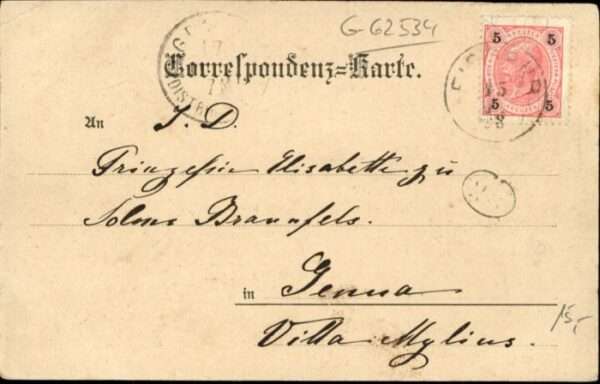 G-62534
5 5
Correspondenz=Karte.
5 5
An J. D.
Prinzessin Elisabeth zu
Solms Braunfels.
in Genua
Villa Mylius.
15,-